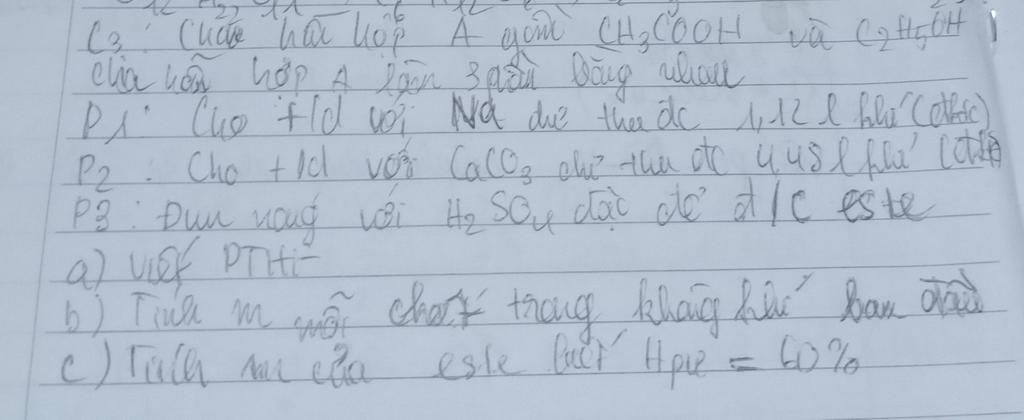 C3: Cho hỗn hợp A gồm CH3COOH và C2H5OH
chia hỗn hợp A làm 3 phần bằng nhau
P1: Cho t/d với Na dư thu đc 1,12 l khí (đktc)
P2: Cho t/d với CaCO3 dư thu đc 4,48 l khí (đktc)
P3: Đun nóng với H2SO4 đặc để đ/c este
a) Viết PTHH
b) Tính m mỗi chất trong ban đầu
c) Tính m của este biết Hpư = 60%